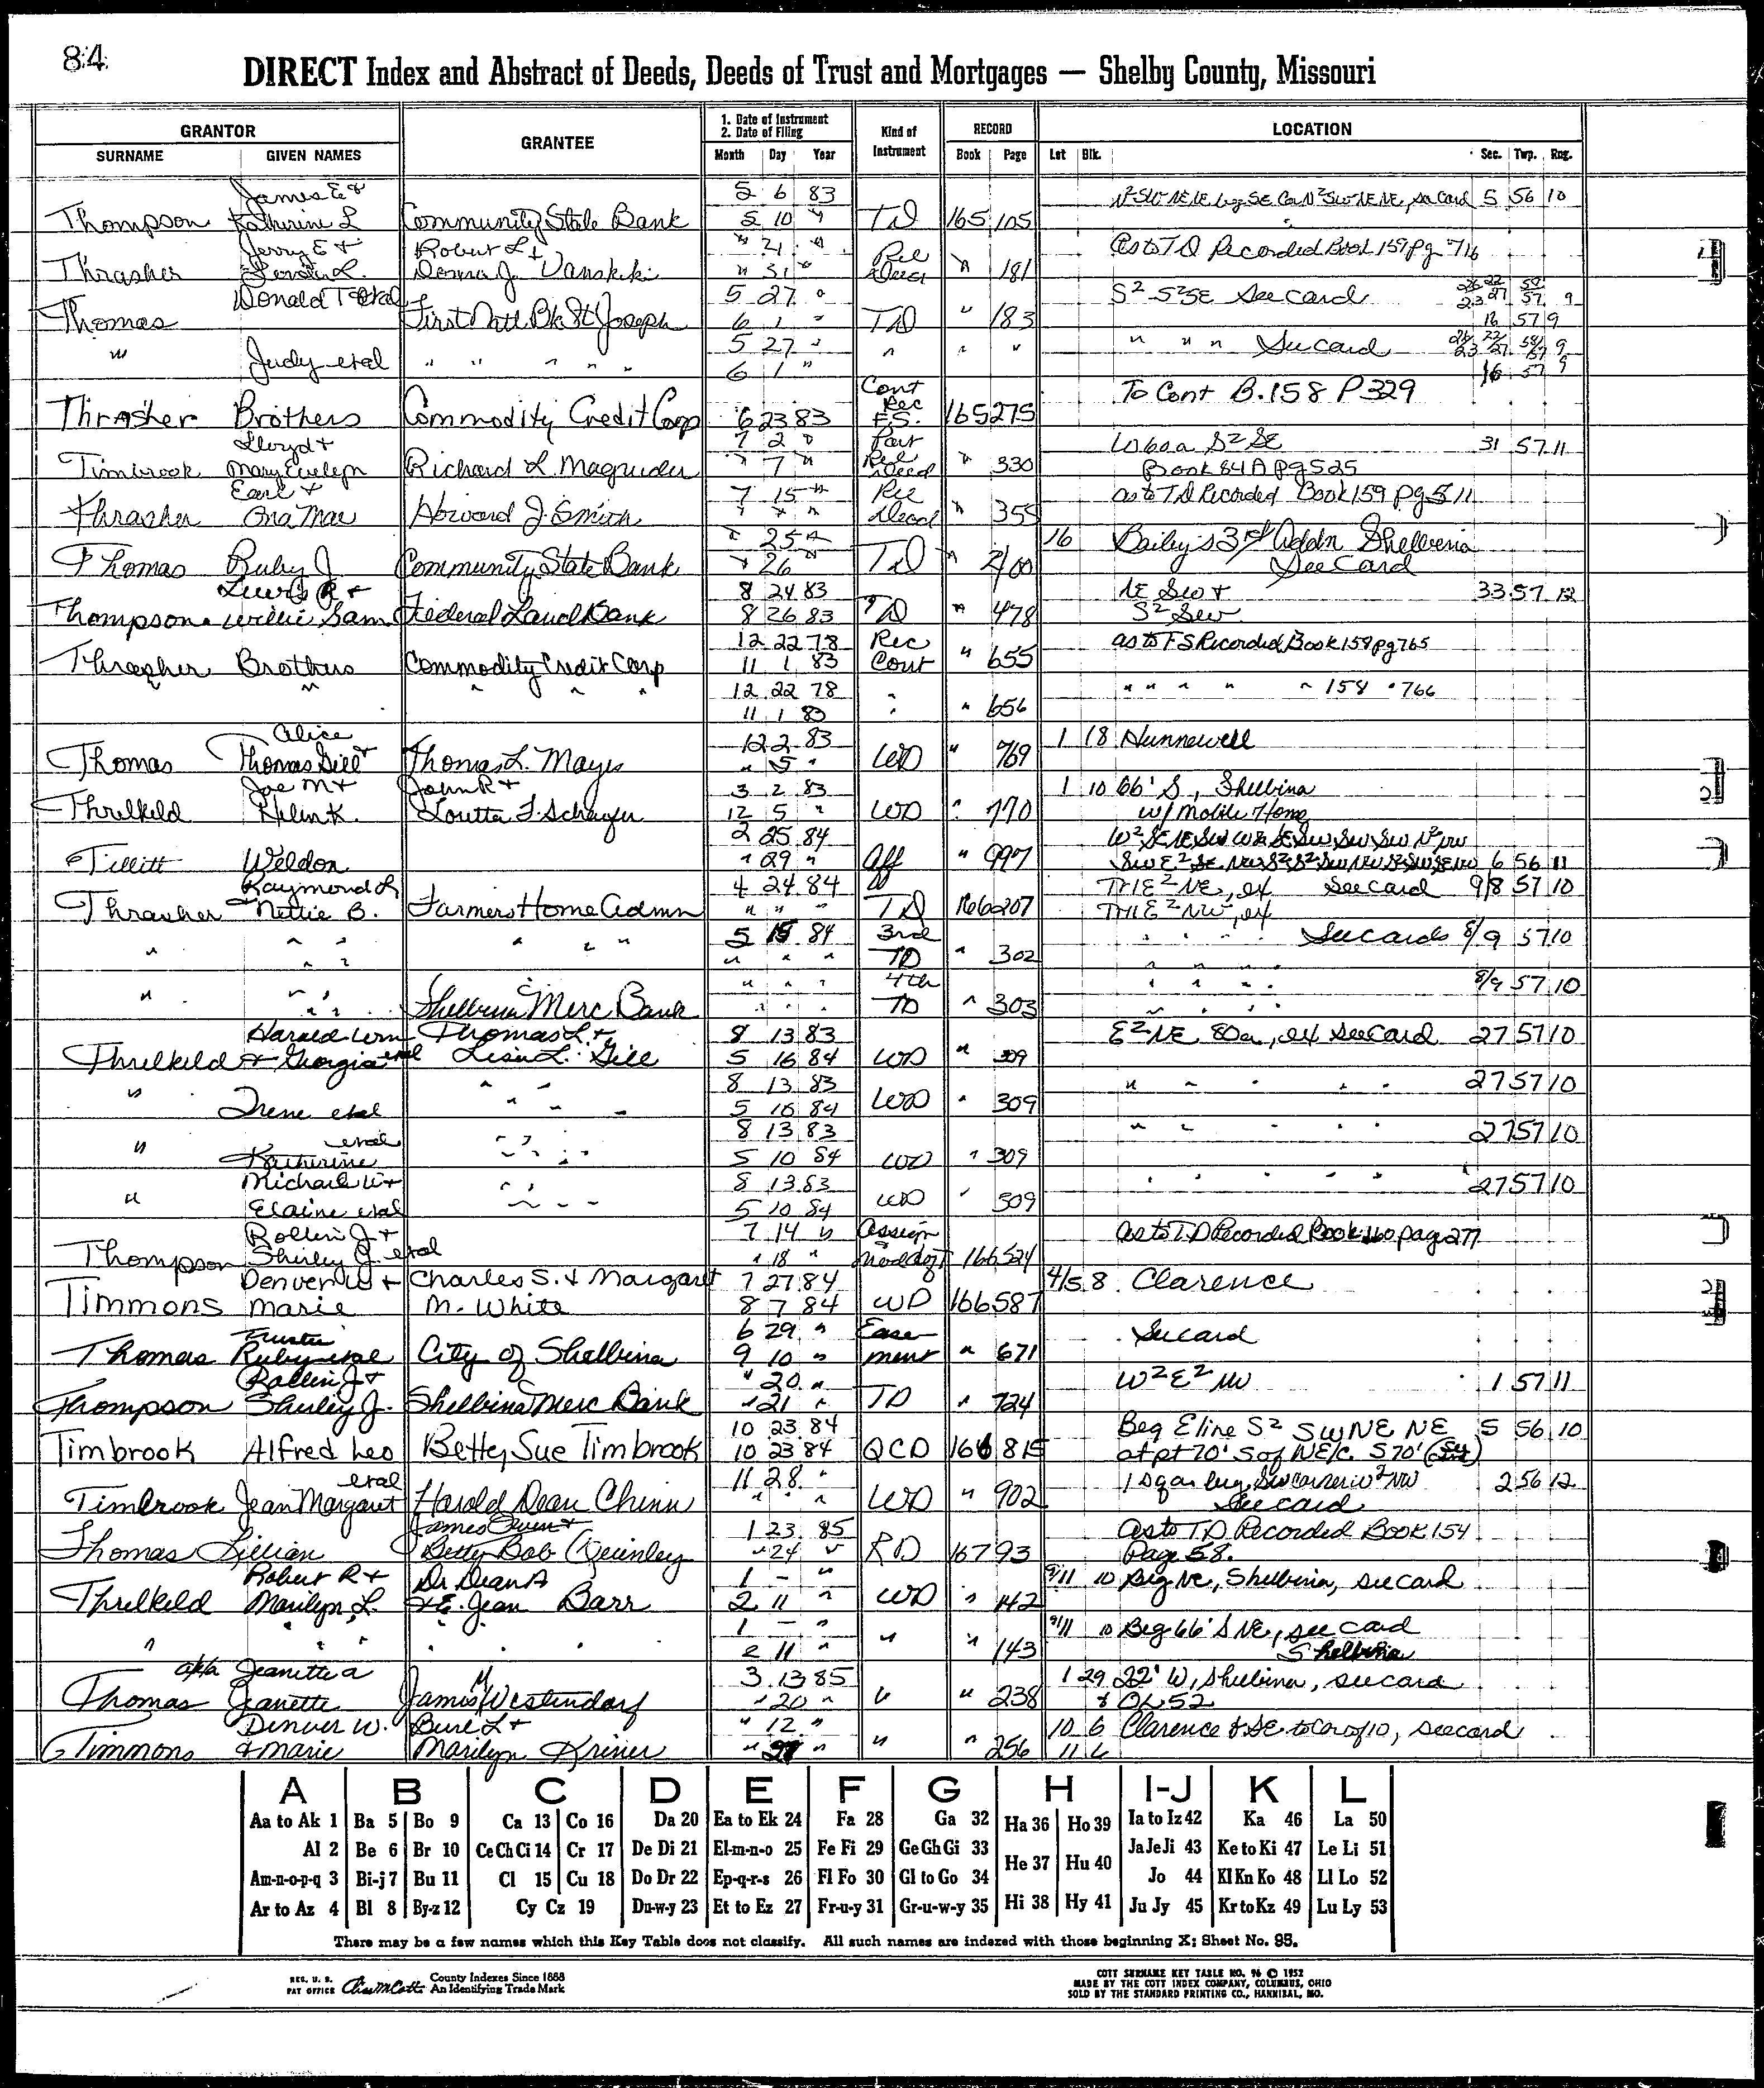 84
DIRECT Index and Abstract of Deeds, Deeds of Trust and Mortgages — Shelby County, Missouri
GRANTOR GRANTEE 1. Date of Instrument 2. Date of Filing Kind of Instrument RECORD LOCATION
SURNAME GIVEN NAMES Month Day Year Book Page Lot Blk. Sec. Twp. Rng.
James E & 5 6 83 N²SW NE NE, beg SE Cor N²SW NE NE, see Card 5 56 10
Thompson Katherine L Community State Bank 5 10 " TD 165 105
Jerry E & Robert L & " 21 " Rel As to TD Recorded Book 159 Pg 716
Thrasher L. Donna J. Vanskike " 31 " Deed " 181
Donald T etal 5 27 " S² S²SE See card
Thomas First Natl Bk St Joseph 6 1 " TD " 183 16 57 9
" Judy etal " " " " " 5 27 " " " " " " " See card
6 1 " 16 57 9
Cont To Cont B. 158 P 329
Thrasher Brothers Commodity Credit Corp 6 23 83 Rec F.S. 165 275
Lloyd & 7 2 " Part W60a S² SE 31 57 11
Timbrook Mary Evelyn Richard L. Magruder " 7 " Rel Deed " 330 Book 84A Pg 525
Earl & 7 15 " Rel as to TD Recorded Book 159 Pg 511
Thrasher Ona Mae Howard J. Smith " " " Deed " 355
" 25 " 16 Bailey's 3rd Addn Shelbina
Thomas Ruby J Community State Bank " 26 " TD " 400 See Card
Lewis R & 8 24 83 NE SW & 33 57 12
Thompson Willie Sam Federal Land Bank 8 26 83 TD " 478 S² SW
12 22 78 Rec as to FS Recorded Book 158 pg 765
Thrasher Brothers Commodity Credit Corp 11 1 83 Cont " 655
" " " " 12 22 78 " " " " " 158 " 766
11 1 83 " " 656
Alice 12 2 83 1 18 Hunnewell
Thomas Thomas Gill & Thomas L. Mayes " 5 " WD " 769
Joe M & John R & 3 2 83 1 10 66' S, Shelbina
Threlkeld Helen K. Loretta F. Schaefer 12 5 " WD " 770 w/ Mobile Home
2 25 84
Tillitt Weldon " 29 " Aff " 997 6 56 11
Raymond L 4 24 84 TH E² NE, ex See card 9/8 57 10
Thrasher Nettie B. Farmers Home Admn " " " TD 166 207 TH E² NW, ex
" " " " " " 5 15 84 3rd " " " " See cards 8/9 57 10
" " " " " TD " 302 " " " "
" " " " " " 4th " " " " 8/9 57 10
" " Shelbina Merc Bank " " " TD " 303 " " "
Harold Wm Thomas L. & 8 13 83 E² NE 80a, ex see card 27 57 10
Threlkeld & Georgia etal Lisa L. Gill 5 16 84 WD " 309
" " " 8 13 83 " " " " " 27 57 10
Irene etal " " 5 16 84 WD " 309
" etal " " 8 13 83 " " " " " 27 57 10
Katherine " " " 5 10 84 WD " 309
Michael W & " " 8 13 83 " " " " " 27 57 10
" Elaine etal " " " 5 10 84 WD " 309
Rollin J & 7 14 " Assign As to TD Recorded Book 160 page 277
Thompson Shirley J. etal " 18 " 166 524
Denver W & Charles S. & Margaret 7 27 84 4/5 8 Clarence
Timmons Marie M. White 8 7 84 WD 166 587
Trustee 6 29 " Ease- See card
Thomas Ruby etal City of Shelbina 9 10 " ment " 671
Rollin J & " 20 " W² E² NW 1 57 11
Thompson Shirley J. Shelbina Merc Bank " 21 " TD " 724
10 23 84 Beg E line S² SW NE NE 5 56 10
Timbrook Alfred Leo Betty Sue Timbrook 10 23 84 QCD 166 815 at pt 70' S of NE/c. S 70'
etal 11 28 " 1 sq ar beg, SW corner W² NW 2 56 12
Timbrook Jean Margaret Harold Dean Chinn " " " WD " 902 See card
James Owen & 1 23 85 As to TD Recorded Book 154
Thomas Lillian Betty Bob Quinley " 24 " RD 167 93 Page 58.
Robert R & Dr Dean A 1 - " 9/11 10 Beg NE, Shelbina, see card
Threlkeld Marilyn L. & E. Jean Barr 2 11 " WD " 142
" " " " " " " 1 - " " " 9/11 10 Beg 66' S NE, see card
2 11 " 143 Shelbina
a/k/a Jeanette A 3 13 85 1 29 22' W, Shelbina, see card
Thomas Jeanette James M Westendorf " 20 " " " 238 & OL 52
Denver W. Burl L & " 12 " 10 6 Clarence & SE to Cor of 10, see card
Timmons & Marie Marilyn Kriner " " " " 256 11 6
A B C D E F G H I-J K L
Aa to Ak 1 Ba 5 Bo 9 Ca 13 Co 16 Da 20 Ea to Ek 24 Fa 28 Ga 32 Ha 36 Ho 39 Ia to Iz 42 Ka 46 La 50
Al 2 Be 6 Br 10 Ce Ch Ci 14 Cr 17 De Di 21 El-m-n-o 25 Fe Fi 29 Ge Gh Gi 33 He 37 Hu 40 Ja Je Ji 43 Ke to Ki 47 Le Li 51
Am-n-o-p-q 3 Bi-j 7 Bu 11 Cl 15 Cu 18 Do Dr 22 Ep-q-r-s 26 Fl Fo 30 Gl to Go 34 Jo 44 Kl Kn Ko 48 Ll Lo 52
Ar to Az 4 Bl 8 By-z 12 Cy Cz 19 Du-w-y 23 Et to Ez 27 Fr-u-y 31 Gr-u-w-y 35 Hi 38 Hy 41 Ju Jy 45 Kr to Kz 49 Lu Ly 53
There may be a few names which this Key Table does not classify. All such names are indexed with those beginning X; Sheet No. 95.
REG. U. S. PAT OFFICE County Indexes Since 1888 An Identifying Trade Mark
COTT SURNAME KEY TABLE NO. 96 © 1952
MADE BY THE COTT INDEX COMPANY, COLUMBUS, OHIO
SOLD BY THE STANDARD PRINTING CO., HANNIBAL, MO.